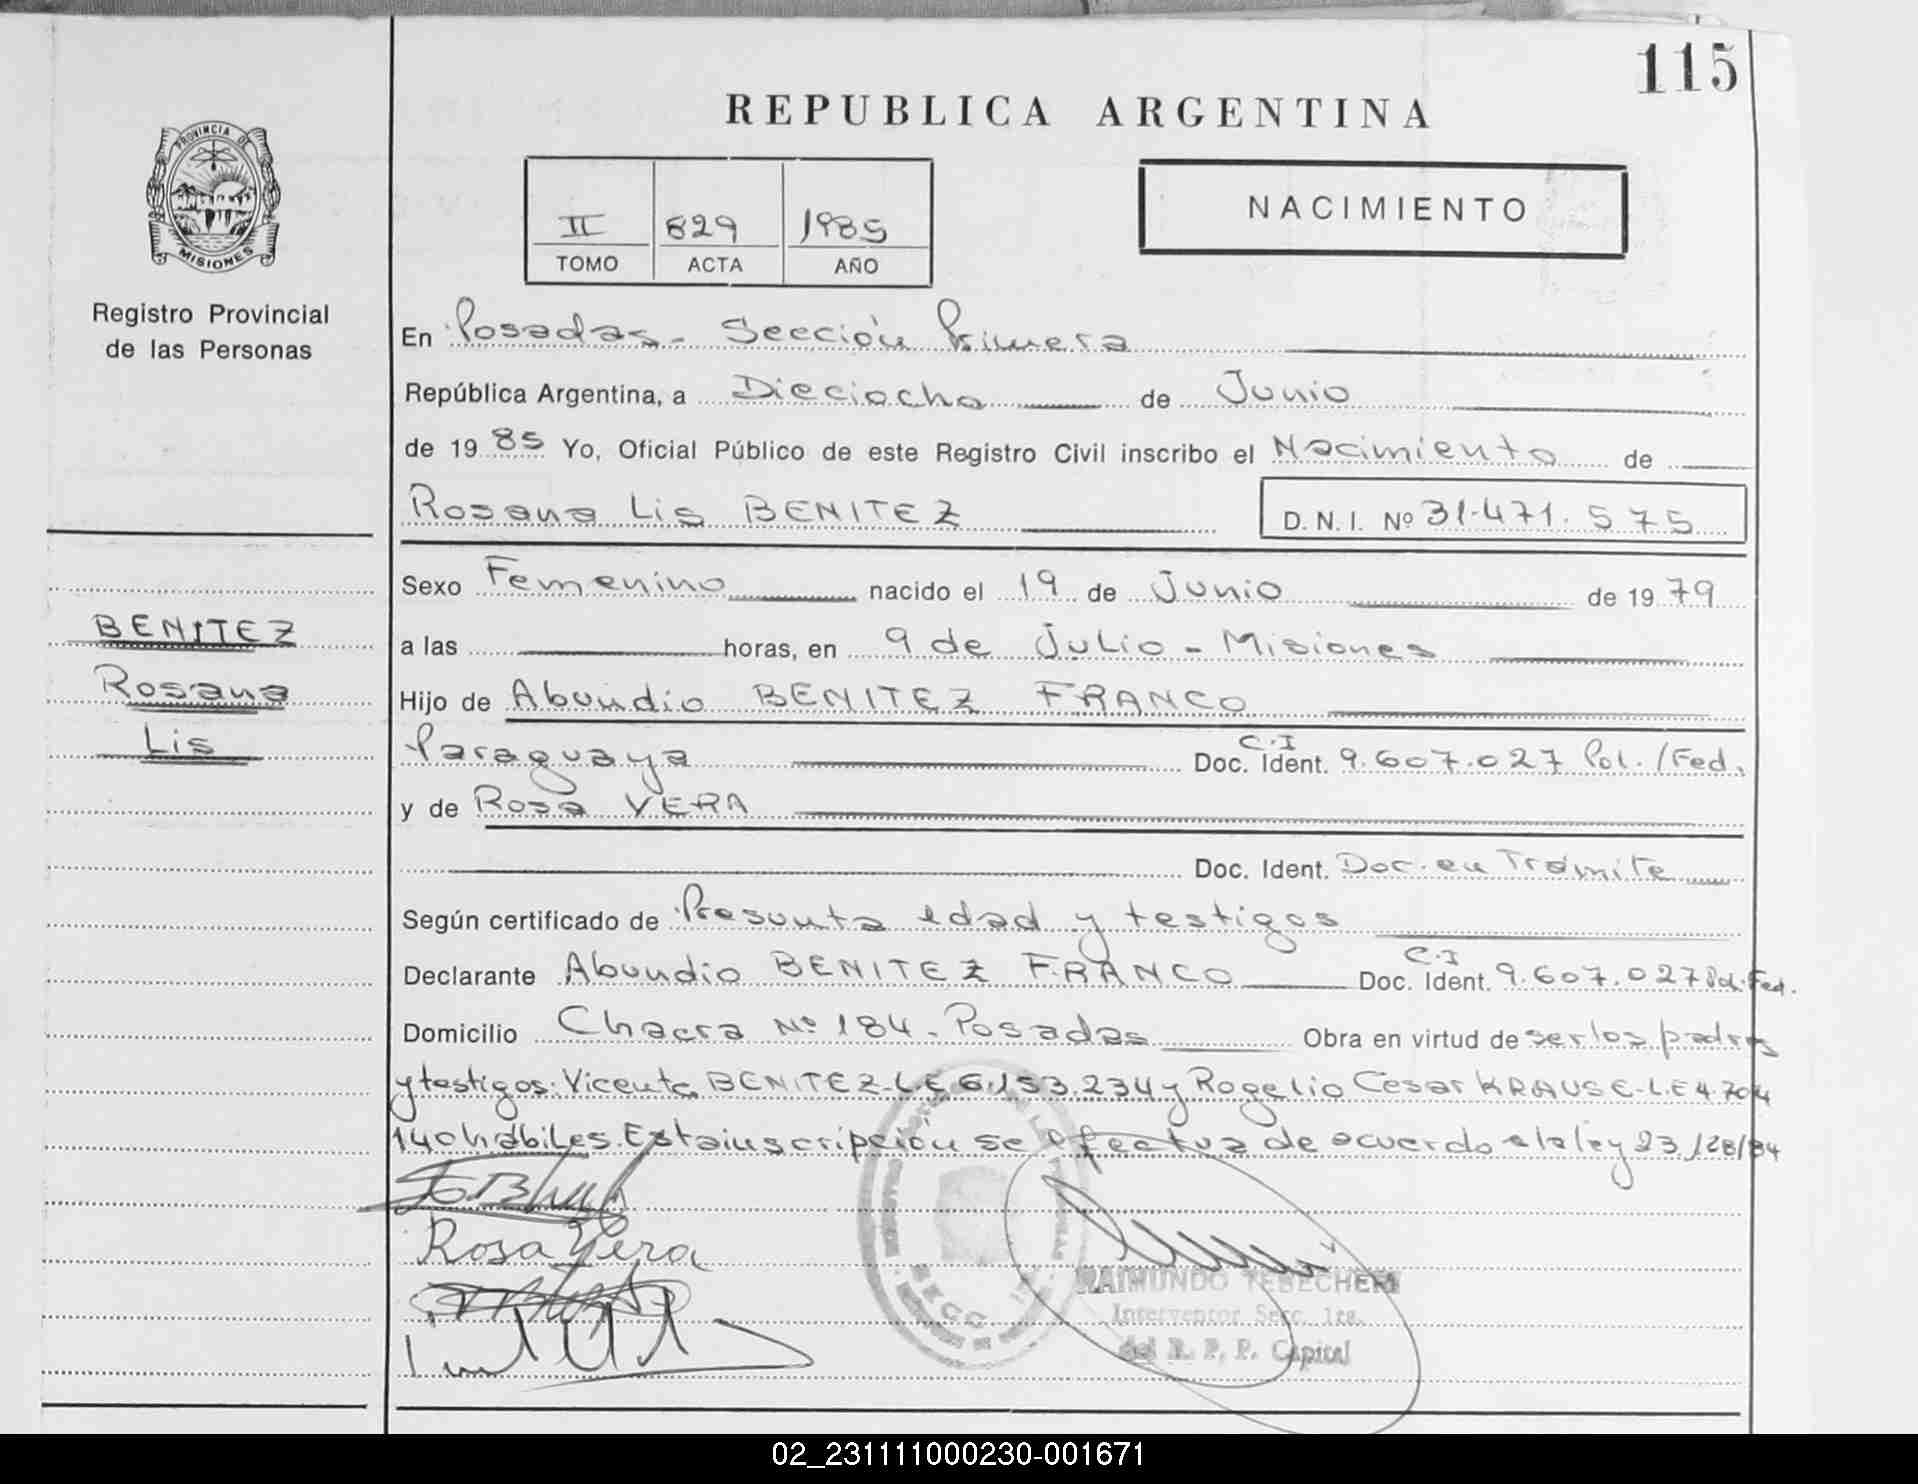 115
REPUBLICA ARGENTINA
PROVINCIA DE
MISIONES
Registro Provincial
de las Personas
II 829 1985
TOMO ACTA AÑO
NACIMIENTO
En Posadas - Sección Primera
República Argentina, a Dieciocho de Junio
de 19 85 Yo, Oficial Público de este Registro Civil inscribo el Nacimiento de
Rosana Lis BENITEZ D. N. I. Nº 31.471.575
Sexo Femenino nacido el 19 de Junio de 19 79
BENITEZ
a las horas, en 9 de Julio - Misiones
Rosana
Hijo de Abundio BENITEZ FRANCO
Lis
Paraguaya C.I Doc. Ident. 9.607.027 Pol./Fed.
y de Rosa VERA
Doc. Ident. Doc. en Trámite
Según certificado de Presunta edad y testigos
Declarante Abundio BENITEZ FRANCO C.I Doc. Ident. 9.607.027 Pol. Fed.
Domicilio Chacra Nº 184 - Posadas Obra en virtud de ser los padres
y testigos: Vicente BENITEZ - L.E 6.153.234 y Rogelio César KRAUSE - L.E 4.704
140 hábiles. Esta inscripción se efectua de acuerdo a la ley 23.128/84
Rosa Vera
RAIMUNDO TEBECHERI
Interventor Secc. 1ra.
del R. P. P. Capital
SECC.
02_231111000230-001671